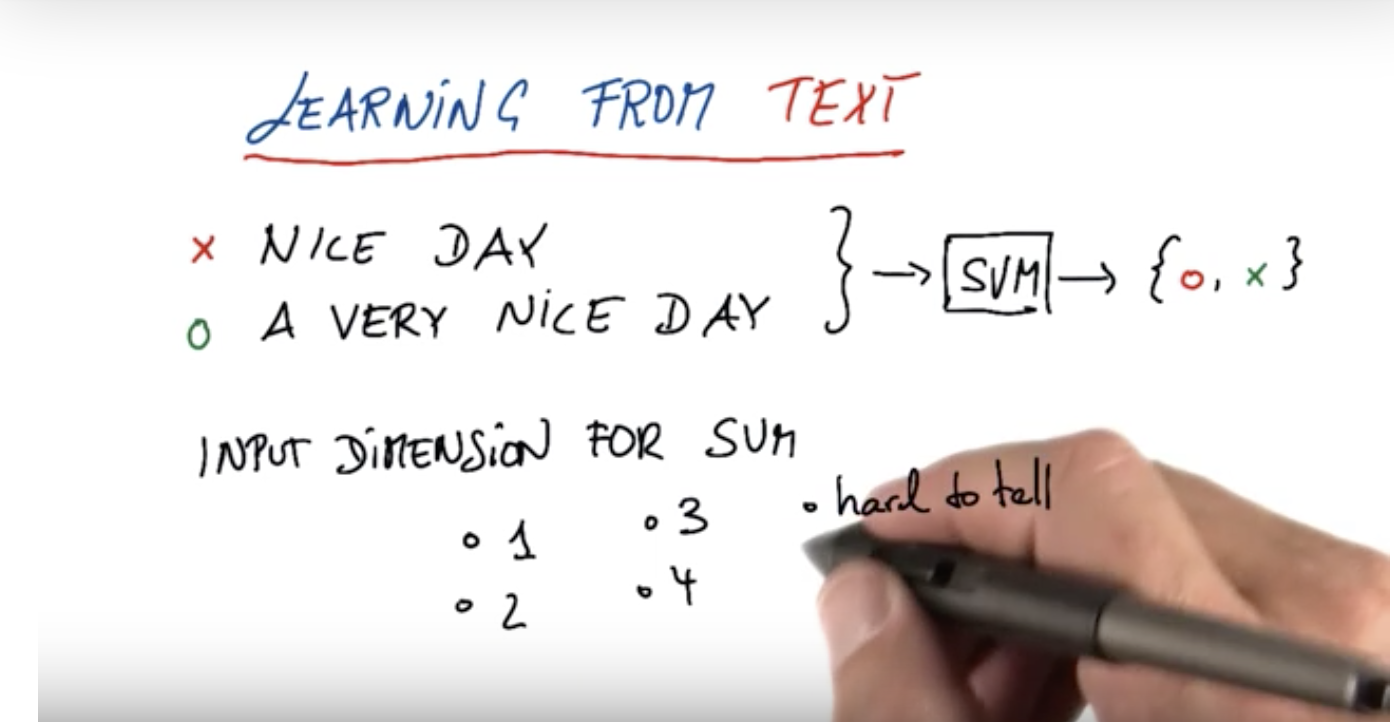 LEARNING FROM TEXT
x NICE DAY
o A VERY NICE DAY
} → SVM → {o, x}
INPUT DIMENSION FOR SVM
◦ 1
◦ 2
◦ 3
◦ 4
◦ hard to tell